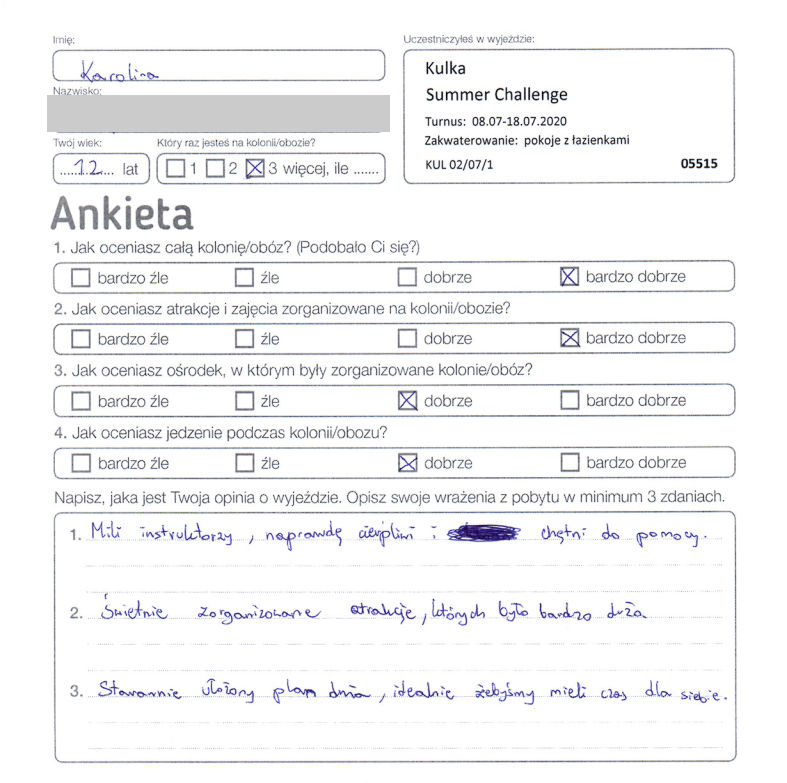 Imię:
Karolina
Nazwisko:
Twój wiek:
12 lat
Który raz jesteś na kolonii/obozie?
1 2 3 więcej, ile .......
Uczestniczyłeś w wyjeździe:
Kulka
Summer Challenge
Turnus: 08.07-18.07.2020
Zakwaterowanie: pokoje z łazienkami
KUL 02/07/1 05515
Ankieta
1. Jak oceniasz całą kolonię/obóz? (Podobało Ci się?)
bardzo źle źle dobrze bardzo dobrze
2. Jak oceniasz atrakcje i zajęcia zorganizowane na kolonii/obozie?
bardzo źle źle dobrze bardzo dobrze
3. Jak oceniasz ośrodek, w którym były zorganizowane kolonie/obóz?
bardzo źle źle dobrze bardzo dobrze
4. Jak oceniasz jedzenie podczas kolonii/obozu?
bardzo źle źle dobrze bardzo dobrze
Napisz, jaka jest Twoja opinia o wyjeździe. Opisz swoje wrażenia z pobytu w minimum 3 zdaniach.
1. Mili instruktorzy, naprawdę cierpliwi i chętni do pomocy.
2. Świetnie zorganizowane atrakcje, których było bardzo dużo
3. Starannie ułożony plan dnia, idealnie żebyśmy mieli czas dla siebie.